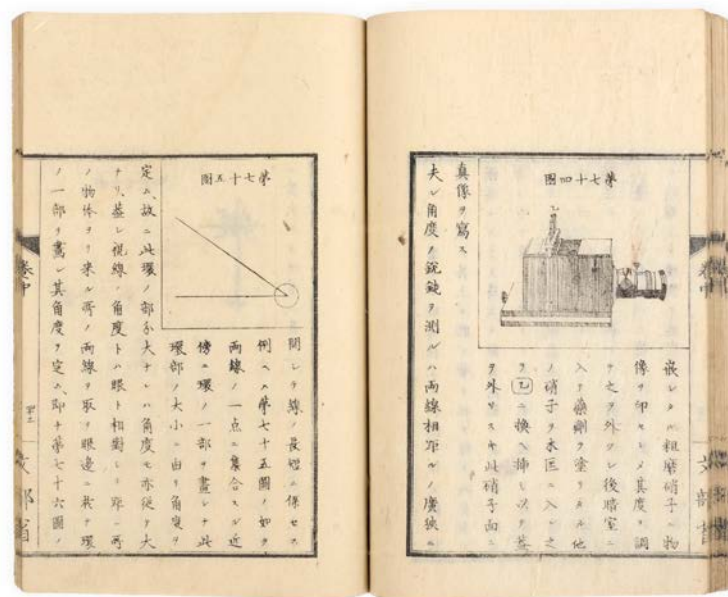 第七十四図
嵌シタル粗磨硝子ニ物
像ヲ印セシメ其度ヲ調
ヘ之ヲ外ツシ後暗室ニ
入リ薬劑ヲ塗リタル他
ノ硝子ヲ木匡ニ入レ之
ヲ乙ニ換ヘ挿シ以テ蓋
ヲ外ツスキ此硝子面ニ
真像ヲ寫ス
夫レ角度ノ鋭鈍ヲ測ルハ両線相距ルノ廣狭ニ
巻中
文部省
第七十五図
関シテ線ノ長短ニ係セス
例ヘハ第七十五圖ノ如ク
両線ノ一点ニ集合スル近
傍ニ環ノ一部ヲ畫シテ此
環部ノ大小ニ由リ角度ヲ
定ム故ニ此環ノ部分大ナレハ角度モ亦従テ大
ナリ蓋シ視線ノ角度トハ眼ト相對シテ距ル所
ノ物体ヨリ来ル所ノ両線ヲ取リ眼邊ニ於テ環
ノ一部ヲ畫シ其角度ヲ定ム即チ第七十六圖ノ
巻中
文部省